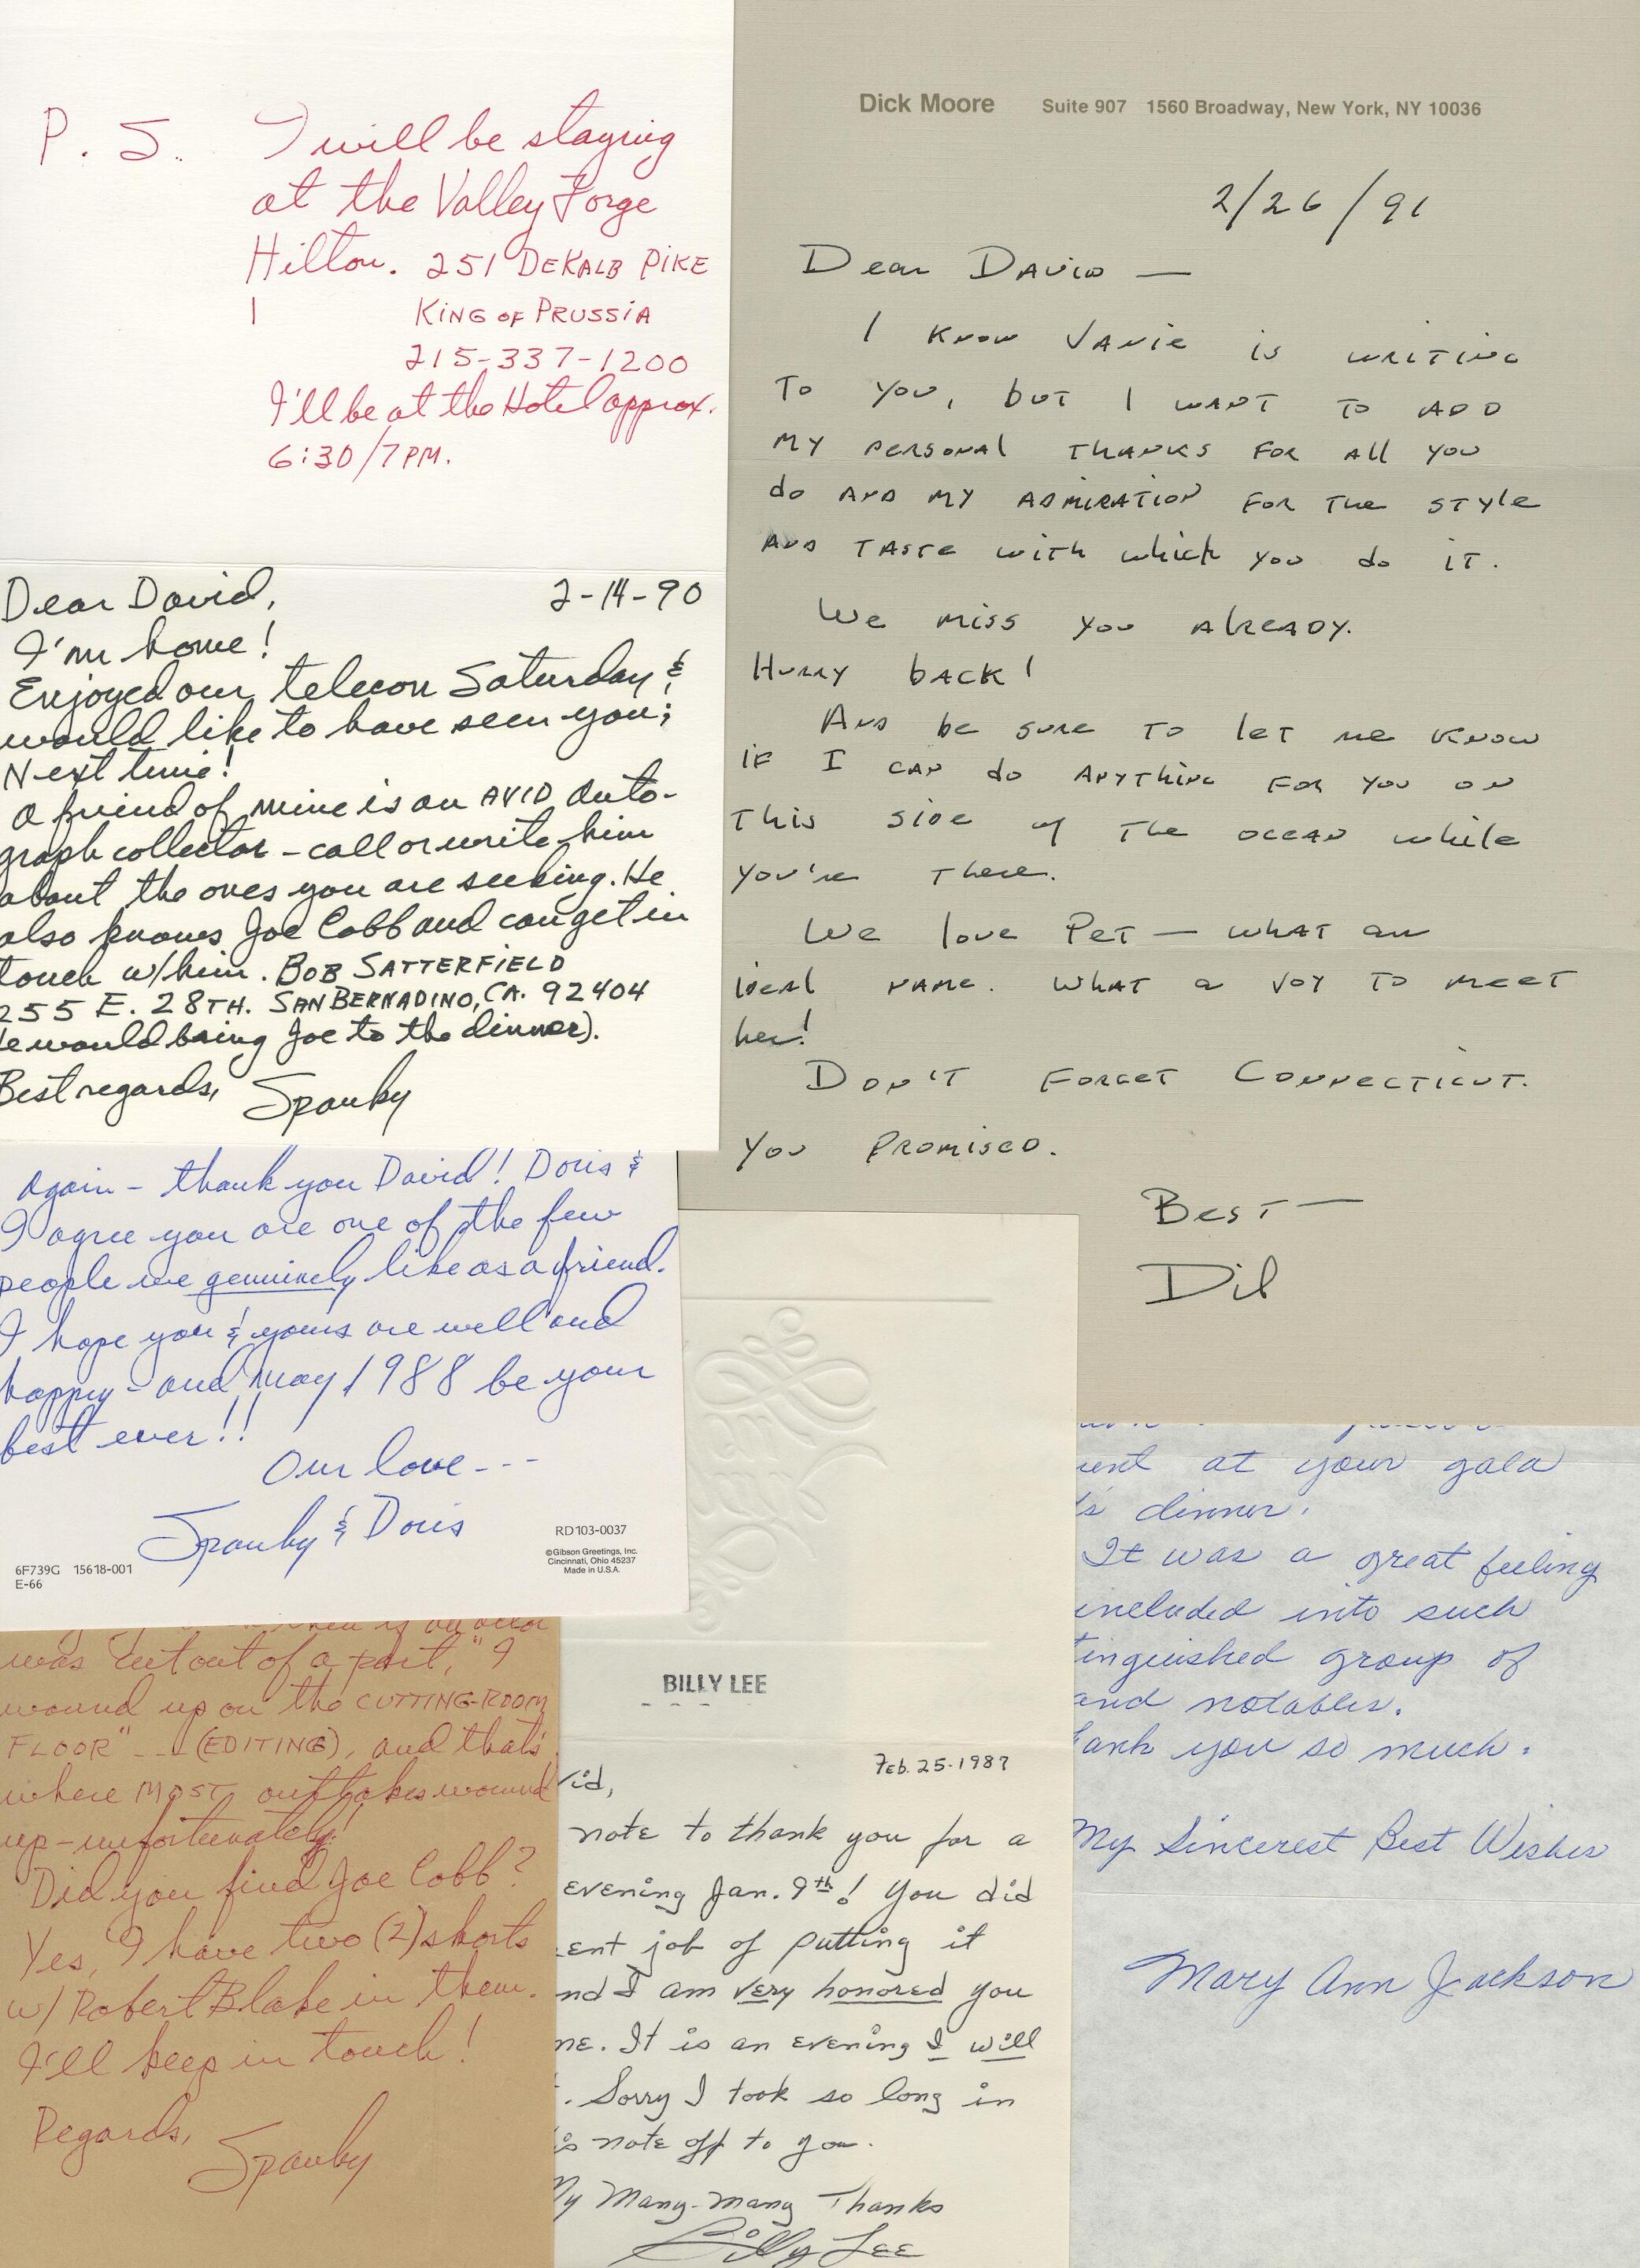 P.S. I will be staying
at the Valley Forge
Hilton. 251 DEKALB PIKE
KING OF PRUSSIA
215-337-1200
I'll be at the Hotel approx.
6:30/7PM.
Dear David, 2-14-90
I'm home!
Enjoyed our telecon Saturday &
would like to have seen you;
Next time!
A friend of mine is an AVID auto-
graph collector - call or write him
about the ones you are seeking. He
also knows Joe Cobb and can get in
touch w/him. BOB SATTERFIELD
255 E. 28TH. SAN BERNADINO, CA. 92404
e would bring Joe to the dinner).
Best regards, Spanky
Again - thank you David! Doris &
I agree you are one of the few
people we genuinely like as a friend.
I hope you & yours are well and
happy - and may 1988 be your
best ever!!
Our love---
Spanky & Doris
RD103-0037
©Gibson Greetings, Inc.
Cincinnati, Ohio 45237
Made in U.S.A.
6F739G 15618-001
E-66
was "cut out of a part," I
wound up on the CUTTING-ROOM
FLOOR" --- (EDITING), and that's
where MOST outtakes wound
up - unfortunately!
Did you find Joe Cobb?
Yes, I have two (2) shorts
w/ Robert Blake in them.
I'll keep in touch!
Regards,
Spanky
Dick Moore Suite 907 1560 Broadway, New York, NY 10036
2/26/91
Dear David —
I know Janie is writing
to you, but I want to add
my personal thanks for all you
do and my admiration for the style
and taste with which you do it.
We miss you already.
Hurry back!
And be sure to let me know
if I can do anything for you on
this side of the ocean while
you're there.
We love Pet — what an
ideal name. What a joy to meet
her!
Don't forget Connecticut.
You promised.
Best —
Dik
BILLY LEE
Feb. 25. 1987
vid,
note to thank you for a
evening Jan. 9th! You did
ent job of putting it
nd I am very honored you
me. It is an evening I will
. Sorry I took so long in
is note off to you.
My Many-many Thanks
Billy Lee
ent at your gala
's dinner.
It was a great feeling
included into such
tinguished group of
and notables.
hank you so much.
My Sincerest Best Wishes
Mary Ann Jackson